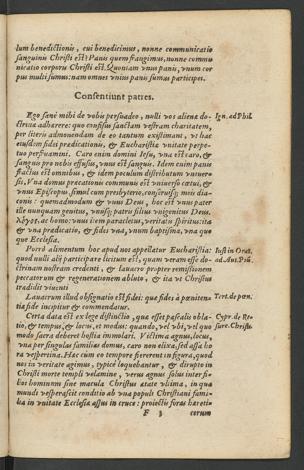 lum benedictionis, cui benedicimus, nonne communicatio
sanguinis Christi est? Panis quem frangimus, nonne commu
nicatio corporis Christi est? Quoniam vnus panis, vnum cor
pus multi sumus: nam omnes vnius panis sumus participes.
Consentiunt patres.
Ego sanè mihi de vobis persuadeo, nulli vos alienæ do- Ign. ad Phil.
ctrinæ adherere: quo confisus sanctam vestram charitatem,
per literas admonendam de eo tantum existimaui, vt hac
eiusdem fidei prædicationis, & Eucharistiæ vnitate perpe-
tuo perfruamini. Caro enim domini Iesu, vna est caro, &
sanguis pro nobis effusus, vnus est sanguis. Idem enim panis
fractus est omnibus, & idem poculum distributum vniuer-
sis, Vna domus precationis communis est vniuerso cætui, &
vnus Episcopus, simul cum presbyteris, conseruis meis dia-
conis: quemadmodum & vnus Deus, hoc est vnus pater
ille nunquam genitus, vnus patris filius vnigenitus Deus.
Λόγος, & homo: vnus item paracletus, veritatis spiritus: ita
& vna prædicatio, & fides vna, vnum baptisma, vna que
que Ecclesia.
Porrò alimentum hoc apud nos appellatur Eucharistia: Iust. in Orat.
quod nulli alij participare licitum est, quam veram esse do- ad. Ant. Piū.
ctrinam nostram credenti, & lauacro propter remissionem
peccatorum & regenerationem abluto, & ita vt Christus
tradidit viuenti
Lauacrum illud obsignatio est fidei: quæ fides à pœniten- Tert. de pœn.
tiæ fide incipitur & commendatur.
Certa data est ex lege distinctio, quæ esset paschalis obla- Cypr. de Re-
tio, & tempus, & locus, et modus: quando, vel vbi, vel quo surr. Christi.
modo sacra deberet hostia immolari. Victima agnus, locus,
vna per singulas familias domus, caro non elixa, sed assa ho
ra vespertina. Hæc cum eo tempore fierent in figura, quod
nos in veritate agimus, typicè loquebantur, & dirupto in
Christi morte templi velamine, verus agnus solus inter fi-
lios hominum sine macula Christus ætate vltima, in qua
mundi vesperascit conditio ab vna populi Christiani fami-
lia in vnitate Ecclesiæ assus in cruce: proiectis foras hæreti-
F 3 corum